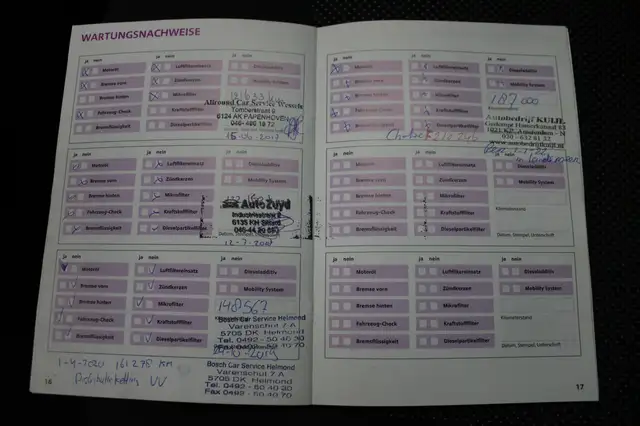 WARTUNGSNACHWEISE
ja nein ja nein ja nein
Motoröl Luftfiltereinsatz Dieseladditiv
Bremse vorn Zündkerzen Mobility System
Bremse hinten Mikrofilter
Fahrzeug-Check Kraftstofffilter
Bremsflüssigkeit Dieselpartikelfilter
Allround Car Service Wessels
6124 AK PAPENHOVEN
046-485 18 72
ja nein ja nein ja nein
Motoröl Luftfiltereinsatz Dieseladditiv
Bremse vorn Zündkerzen Mobility System
Bremse hinten Mikrofilter
Fahrzeug-Check Kraftstofffilter
Bremsflüssigkeit Dieselpartikelfilter
Auto Zuyd
6135 KH Sittard
Datum, Stempel, Unterschrift
ja nein ja nein ja nein
Motoröl Luftfiltereinsatz Dieseladditiv
Bremse vorn Zündkerzen Mobility System
Bremse hinten Mikrofilter
Fahrzeug-Check Kraftstofffilter
Bremsflüssigkeit Dieselpartikelfilter
148567
Bosch Car Service Helmond
Varenschut 7 A
5705 DK Helmond
Tel. 0492 - 50 40 30
Fax 0492 - 50 40 70
1-4-2020 161275 KM
Distributieketting VV
Bosch Car Service Helmond
Varenschut 7 A
5705 DK Helmond
Tel. 0492 - 50 40 30
Fax 0492 - 50 40 70
16
ja nein ja nein ja nein
Motoröl Luftfiltereinsatz Dieseladditiv
Bremse vorn Zündkerzen Mobility System
Bremse hinten Mikrofilter
Fahrzeug-Check Kraftstofffilter
Bremsflüssigkeit Dieselpartikelfilter
187 000
Autobedrijf KUIJL
ja nein ja nein
Motoröl Luftfiltereinsatz Dieseladditiv
Bremse vorn Zündkerzen Mobility System
Bremse hinten Mikrofilter
Fahrzeug-Check Kraftstofffilter
Bremsflüssigkeit Dieselpartikelfilter
Kilometerstand
Datum, Stempel, Unterschrift
ja nein ja nein ja nein
Motoröl Luftfiltereinsatz Dieseladditiv
Bremse vorn Zündkerzen Mobility System
Bremse hinten Mikrofilter
Fahrzeug-Check Kraftstofffilter
Bremsflüssigkeit Dieselpartikelfilter
Kilometerstand
Datum, Stempel, Unterschrift
17